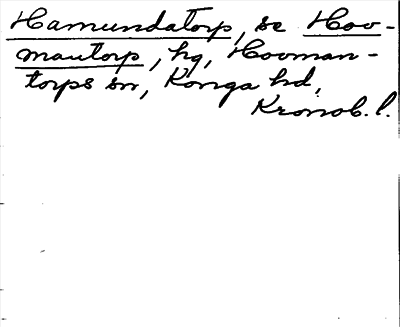 Hamundatorp, se Hov-
mantorp, hg, Hovman-
torps sn, Konga hd,
Kronob. l.